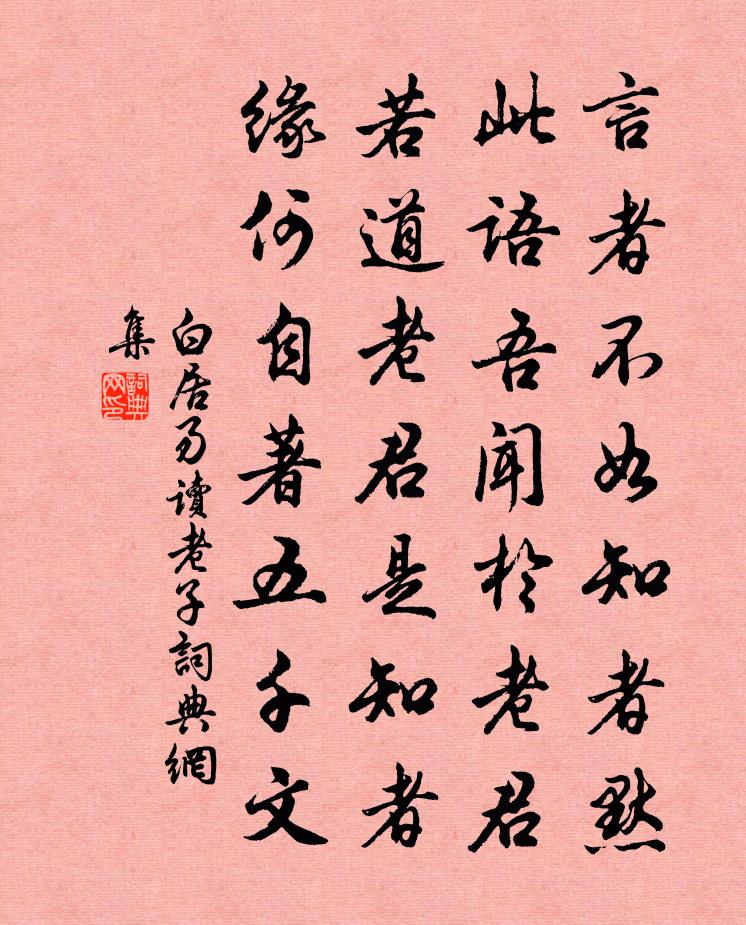 言者不如知者默
此語吾聞於老君
若道老君是知者
緣何自著五千文
白居易讀老子詞典網
集
詞典網印